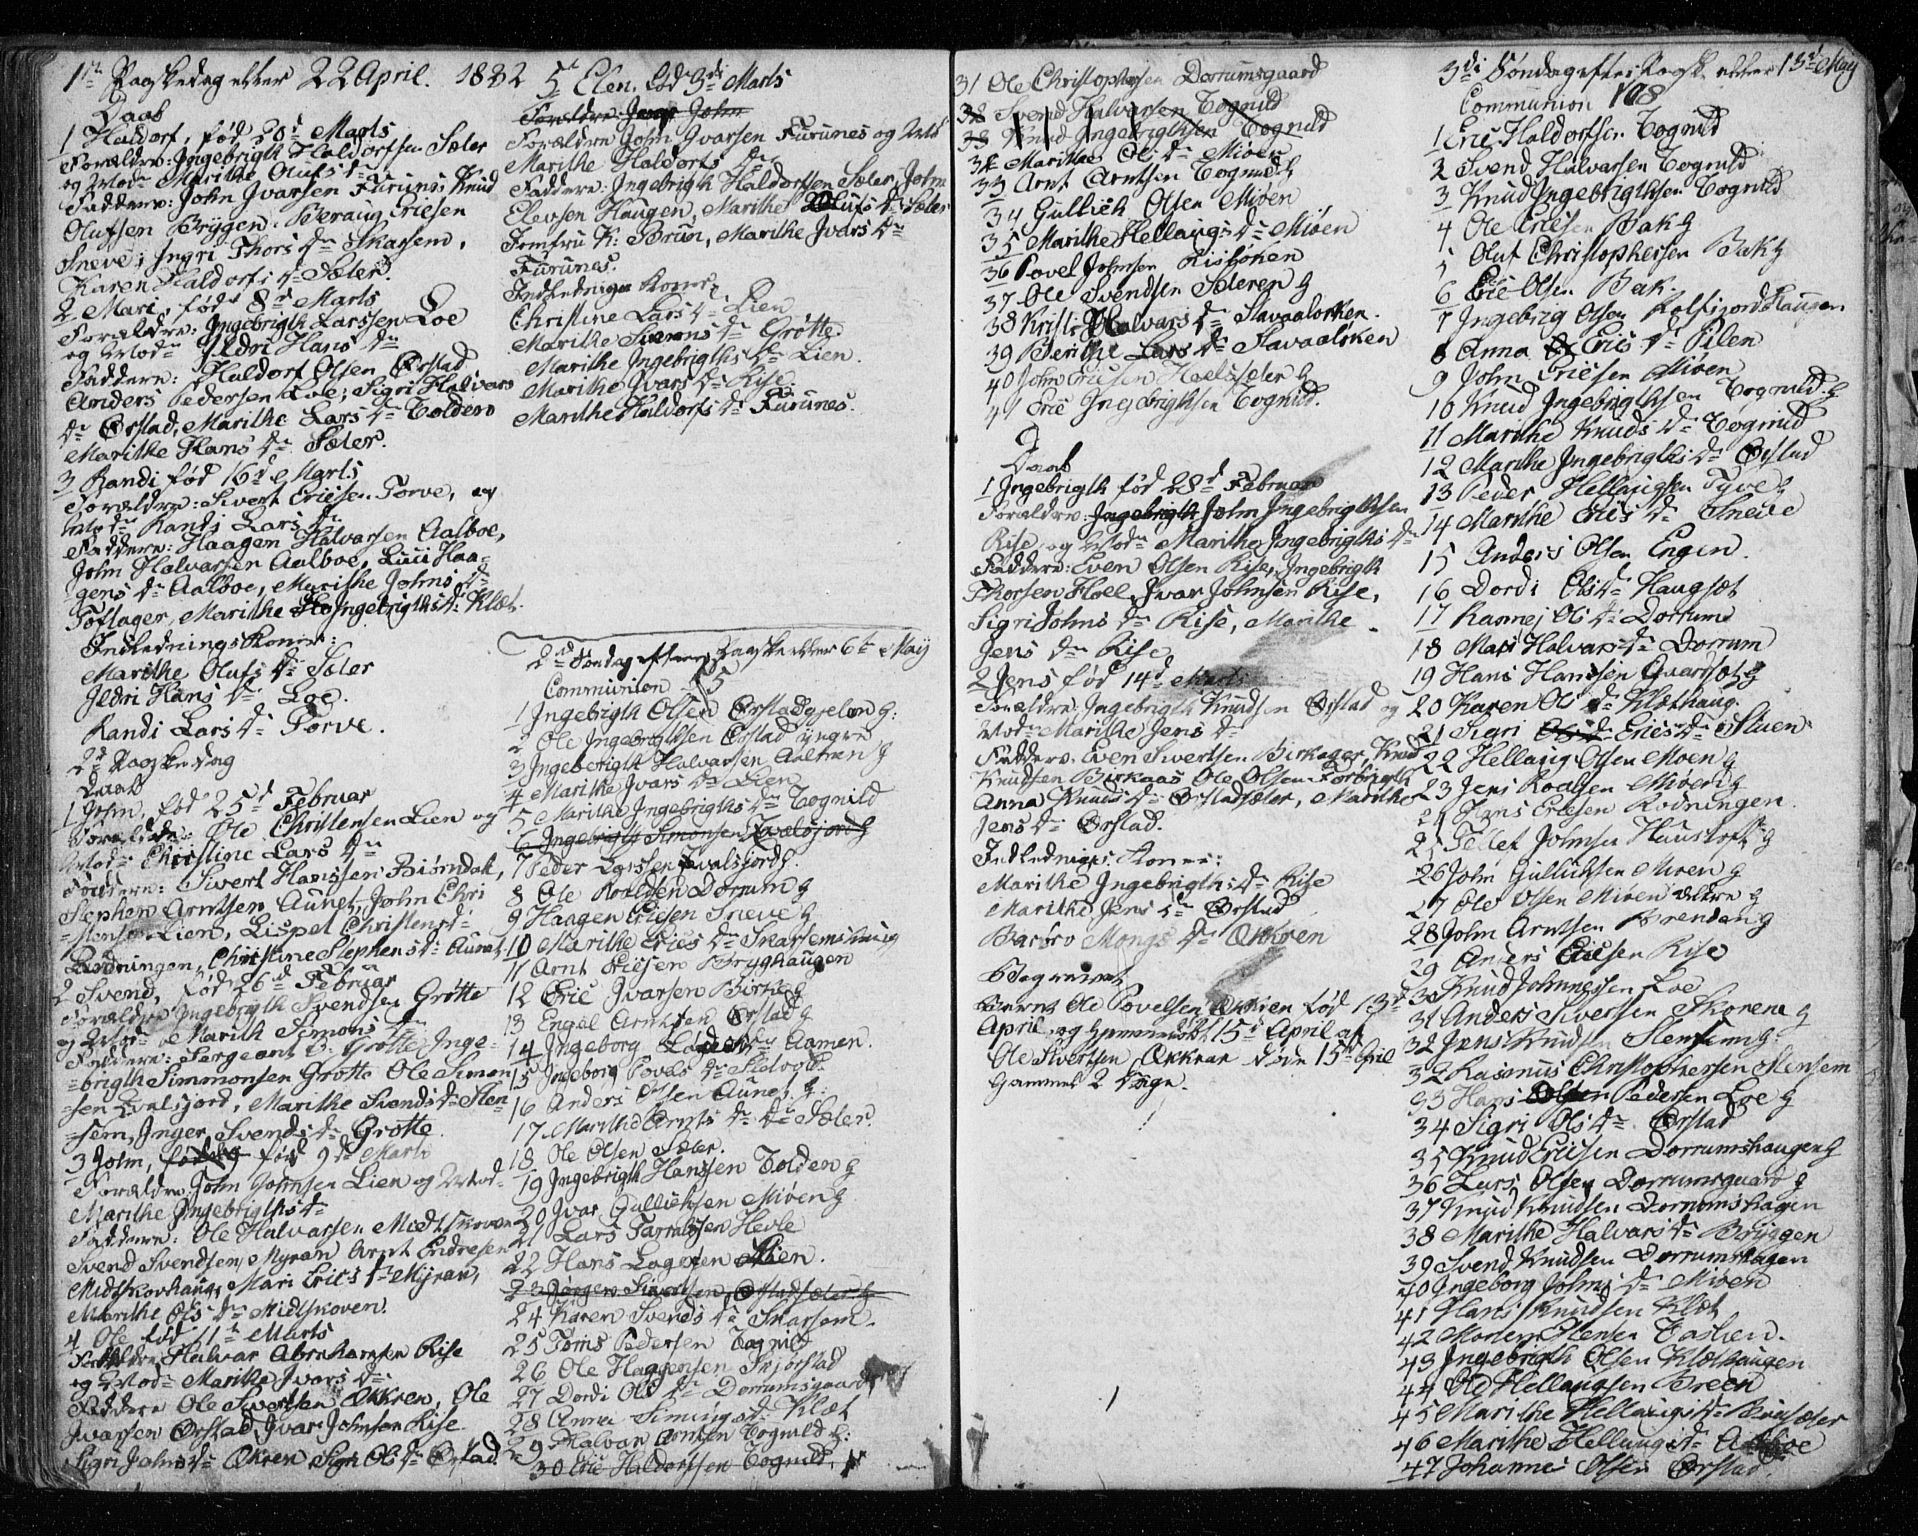 1ste Paaskedag eller 22 April. 1832
Daab
1 Haldorf, fød 20d Marts
Forældre: Ingebrigth Haldorfsen Sæter
og Modr Marithe Olufs dr
Faddere: John Ivarsen Furunes, Knud
Olufsen Bryggen. Beraug Eriesen
Sneve; Ingri Thors dr Skarsem,
Karen Haldorfs dr Sæter.
2 Mari, fød 8d Marts
Forældre: Ingebrigth Larssen Loe
og Modr Ildri Hans dr
Faddere: Haldorf Olsen Ørstad
Anders Pedersen Loe; Sigri Halvars
dr Ørstad, Marithe Lars dr Tolden
Marithe Hans dr Sæter.
3 Randi fød 16d Marts
Forældre: Sivert Ericsen Torve, og
Modr Randi Lars dr
Faddere: Haagen Halvarsen Aalboe,
John Halvarsen Aalboe, Haa-
gens dr Aalboe, Marithe Johns dr
Toflager, Marithe Ingebrigths dr Klæt.
Indledningskoner:
Marithe Olufs dr Sæter
Ildri Hans dr Loe.
Randi Lars dr Torve.
2d Paaskedag
Daab
1 John, fød 25d Februar
Forældre: Ole Christensen Lien og
Modr Christine Lars dr
Faddere: Sivert Hanssen Biørndal,
Stephen Arntsen Aunet, John Chri
=stensen Lien, Lispet Christens dr
Lædningen, Christine Stephens dr Aunet
2 Svend, fød 26d Februar
Forældre Ingebrigth Svendsen Grøtte
og Modr Marith Simons dr
Faddere: Sergeant O. Grøtte, Inge=
=brigth Simmonsen Grøtte Ole Simon
=sen Qvalsjord, Marithe Svends dr Sten=
=sem, Inger Svends dr Grøtte
3 John, fød 9d Marts
Forældre John Johnsen Lien og Mod
Marithe Ingebrigths dr
Faddere: Ole Halvarsen Midtskoven
Svend Svendsen, Myran Arnt Endresen
Midtskovhaug, Mari Erics dr Myran,
Marithe Ols dr Midtskoven.
4 Ole fød 11te Marts
Forældre Halvar Abrahamsen Rise
og Modr Marithe Ivars dr
Faddere Ole Sivertsen Økkren, Ole
Ivarsen Ørstad, Ivar Johnsen Rise
Sigri Johns dr Økren Sigri Ols dr Ørstad
5 Elen, fød 3d Marts
Forældre: John
Forældre John Ivarsen Furunes og Mod
Marithe Haldorfs dr
Faddere: Ingebrigth Haldorfsen Sæter, John
Elevsen Haugen, Marithe Olufs dr Sæter
Jomfru K: Brun, Marithe Ivars dr
Furunes.
Indlednings Koner
Christine Lars dr Lien
Marithe Simons dr Grøtte
Marithe Ingebrigths dr Lien.
Marithe Ivars dr Rise.
Marithe Haldorfs dr Furunes.
2d Søndag efter Paaske eller 6te May
Communion
1 Ingebrigth Olsen Ørstadgjelen g:
2 Ole Ingebrigthsen Ørstad yngre
3 Ingebrigth Halvarsen Aaltrøn g
4 Marithe Ivars dr Lien
5 Marithe Ingebrigths dr Tognild
6 Ingebrigth Simonsen Qvalsjord g
7 Peder Larssen Qvalsjord g.
8 Ole Roaldsen Dorrum g
9 Haagen Ericsen Sneve g
10 Marithe Erics dr Skarsem
11 Arnt Ericsen Brygghaugen
12 Eric Ivarsen Birke g
13 Engel Arntsen Ørstad g
14 Ingeborg dr Aamen.
15 Ingeborg Povels dr
16 Anders Olsen Aunet g:
17 Marithe Arnts dr dr Sæter.
18 Ole Olsen Sæter.
19 Ingebrigth Hanssen Tolden g
20 Ivar Gullichsen Miøen g
21 Lars Tarraldsen Hevle
22 Hans Lagesen Lien.
23 Jørgen Sivertsen Ørstadsæter g
24 Karen Svends dr Skarsem.
25 Toms Pedersen Tognild
26 Ole Haagensen
27 Dordi Ols dr Dorrumsgaard
28 Anne Simings dr Klæt
29 Halvar Arntsen Tognild g:
30 Eric Haldorfsen Tognild
31 Ole Christophersen Dorrumsgaard
32 Svend Halvarsen Tognild
33 Knud Ingebrigthsen Tognild
32 Marithe Ols dr Miøen
33 Arnt Arntsen Tognild g
34 Gullich Olsen Miøen
35 Marithe Hellaugs dr Miøen
36 Povel Johnsen Risløkken
37 Ole Svendsen Sæteren g
38 Kristi Halvars dr Stavaaløkken.
39 Berithe Lars dr Stavaaløkken
40 John Ericsen Hoelssæter g
41 Eric Ingebrigthsen Tognild.
Daab
1 Ingebrigth fød 28d Februar
Forældre: Ingebrigth John Ingebrigthsen
Rise og Modr Marithe Ingebrigths dr
Faddere: Even Olsen Rise, Ingebrigth
Thorsen Hoel, Ivar Johnsen Rise,
Sigri Johns dr Rise, Marithe
Jens dr Rise
2 Jens fød 14d Marts
Forældre: Ingebrigth Knudsen Ørstad og
Modr Marithe Jens dr
Faddere. Even Sivertsen Birkager, Knud
Knudsen Birkaas Ole Olsen
Anna Knuds dr Ørstadsæter, Marithe
Jens dr Ørstad.
Indlednings Koner:
Marithe Ingebrigths dr Rise
Marithe Jens dr Ørstad
Barbro Mongs dr Økkren
Begravet
Barnet Ole Povelsen Økkren fød 13d
April og hjemmedøbt 15d April af
Ole Sivertsen, Økkren døde 15d April
Gammel 2 Dage.
3di Søndag efter Paaske eller 13d May
Communion 108
1 Eric Haldorfsen Tognild
2 Svend Halvarsen Tognild
3 Knud Ingebrigthsen Tognild
4 Ole Ericsen Bak g
5 Oluf Christophersen Bak g
6 Eric Olsen Bak.
7 Ingebrig Olsen Haugen
8 Anna Erics dr Pilen
9 John Ericsen Miøen
10 Knud Ingebrigthsen Tognild g
11 Marithe Knuds dr Tognild
12 Marithe Ingebrigths dr Ørstad
13 Peder Hellaugsen Tyve g
14 Marithe Erics dr Sneve
15 Anders Olsen Engen.
16 Dordi Ols dr Haugset
17 Rannej Ols dr Dorrum
18 Mari Halvars dr Dorrum
19 Hans Hanssen Qvarsæt g
20 Karen Ols dr Kløthaug.
21 Sigri Ols dr Erics dr Stuen
22 Hellaug Olsen Moen g
23 Jens Roalsen Miøen g
24 Hans Ericsen Rodningen.
25 Tellef Johnsen g
26 John Gullichsen Miøen g
27 Ole Olsen Miøen ældre g
28 John Arntsen Brenden g
29 Anders Ericsen Rise
30 Knud Johnnessen Loe
31 Anders Siversen Skorem g
32 Jens Knudsen Stensem g:
32 Rasmus Christophersen Stensem
33 Hans Olsen Pedersen Loe g
34 Sigri Ols dr Ørstad
35 Knud Ericsen Dorrumshaugen g
36 Lars Olsen Dorrumsgaard g
37 Knud Knudsen Dorrumshagen
38 Marithe Halvars dr Bryggen
39 Svend Knudsen Dorrumshagen
40 Ingeborg Johns dr Miøen
41 Hans Knudsen Klæt
42 Morten Jensen
43 Ingebrigth Olsen Klæthaugen
44 Ole Hellaugsen Breen
45 Marithe Hellaugs dr
46 Marithe Hellaugs dr Aalboe
47 Johannes Olsen Ørstad.